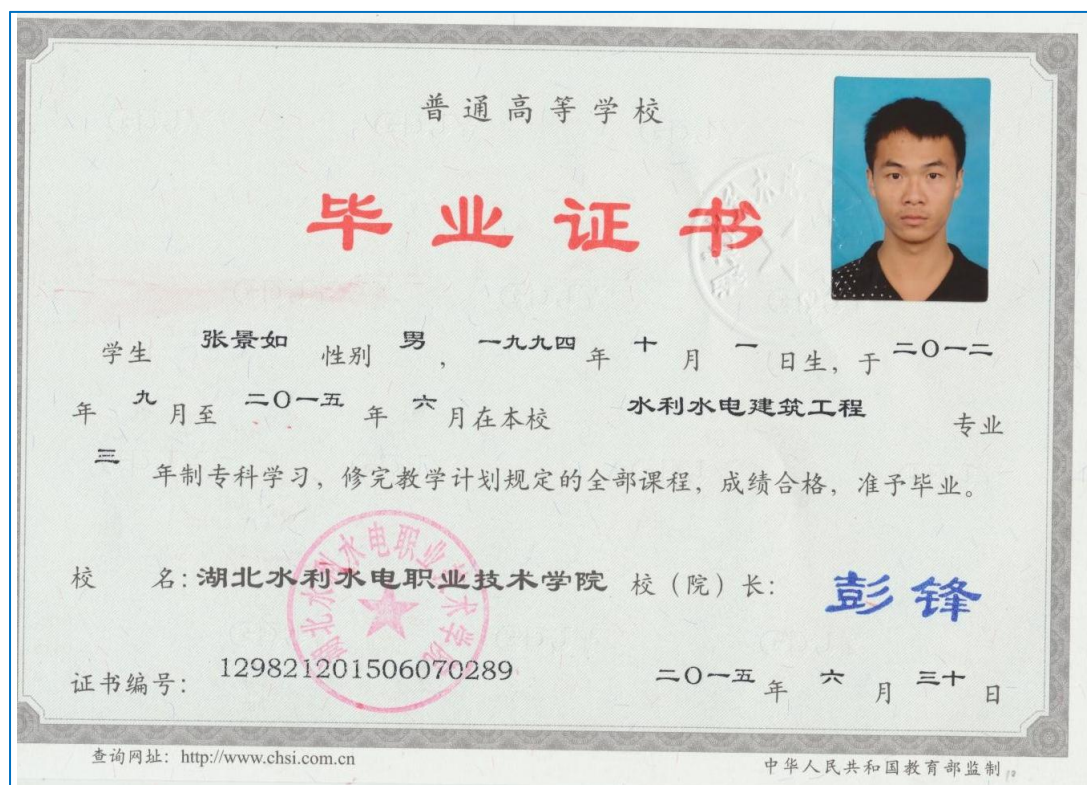 普通高等学校
毕业证书
学生 张景如 性别 男, 一九九四 年 十 月 一 日生, 于 二〇一二
年 九 月至 二〇一五 年 六 月在本校 水利水电建筑工程 专业
三 年制专科学习, 修完教学计划规定的全部课程, 成绩合格, 准予毕业。
校 名: 湖北水利水电职业技术学院 校（院）长: 彭锋
湖北水利水电职业技术学院
证书编号: 129821201506070289 二〇一五 年 六 月 三十 日
查询网址: http://www.chsi.com.cn 中华人民共和国教育部监制